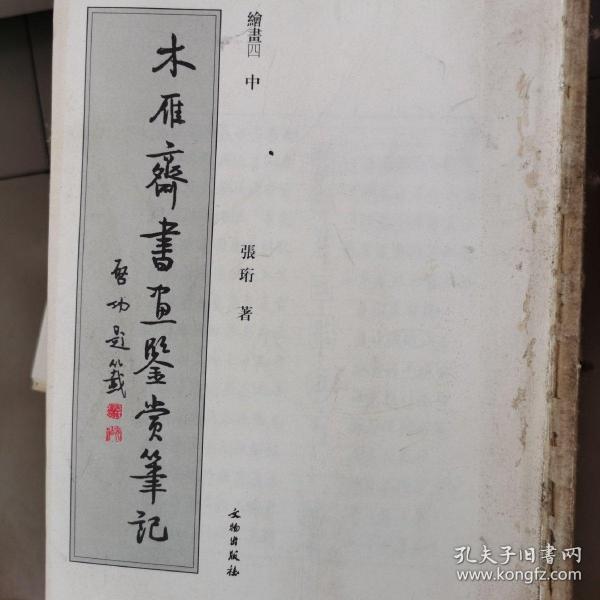 繪畫四 中
張珩 著
文物出版社
木雁齋書画鑒賞筆記
啓功題籤
孔夫子旧书网
www.kongfz.com